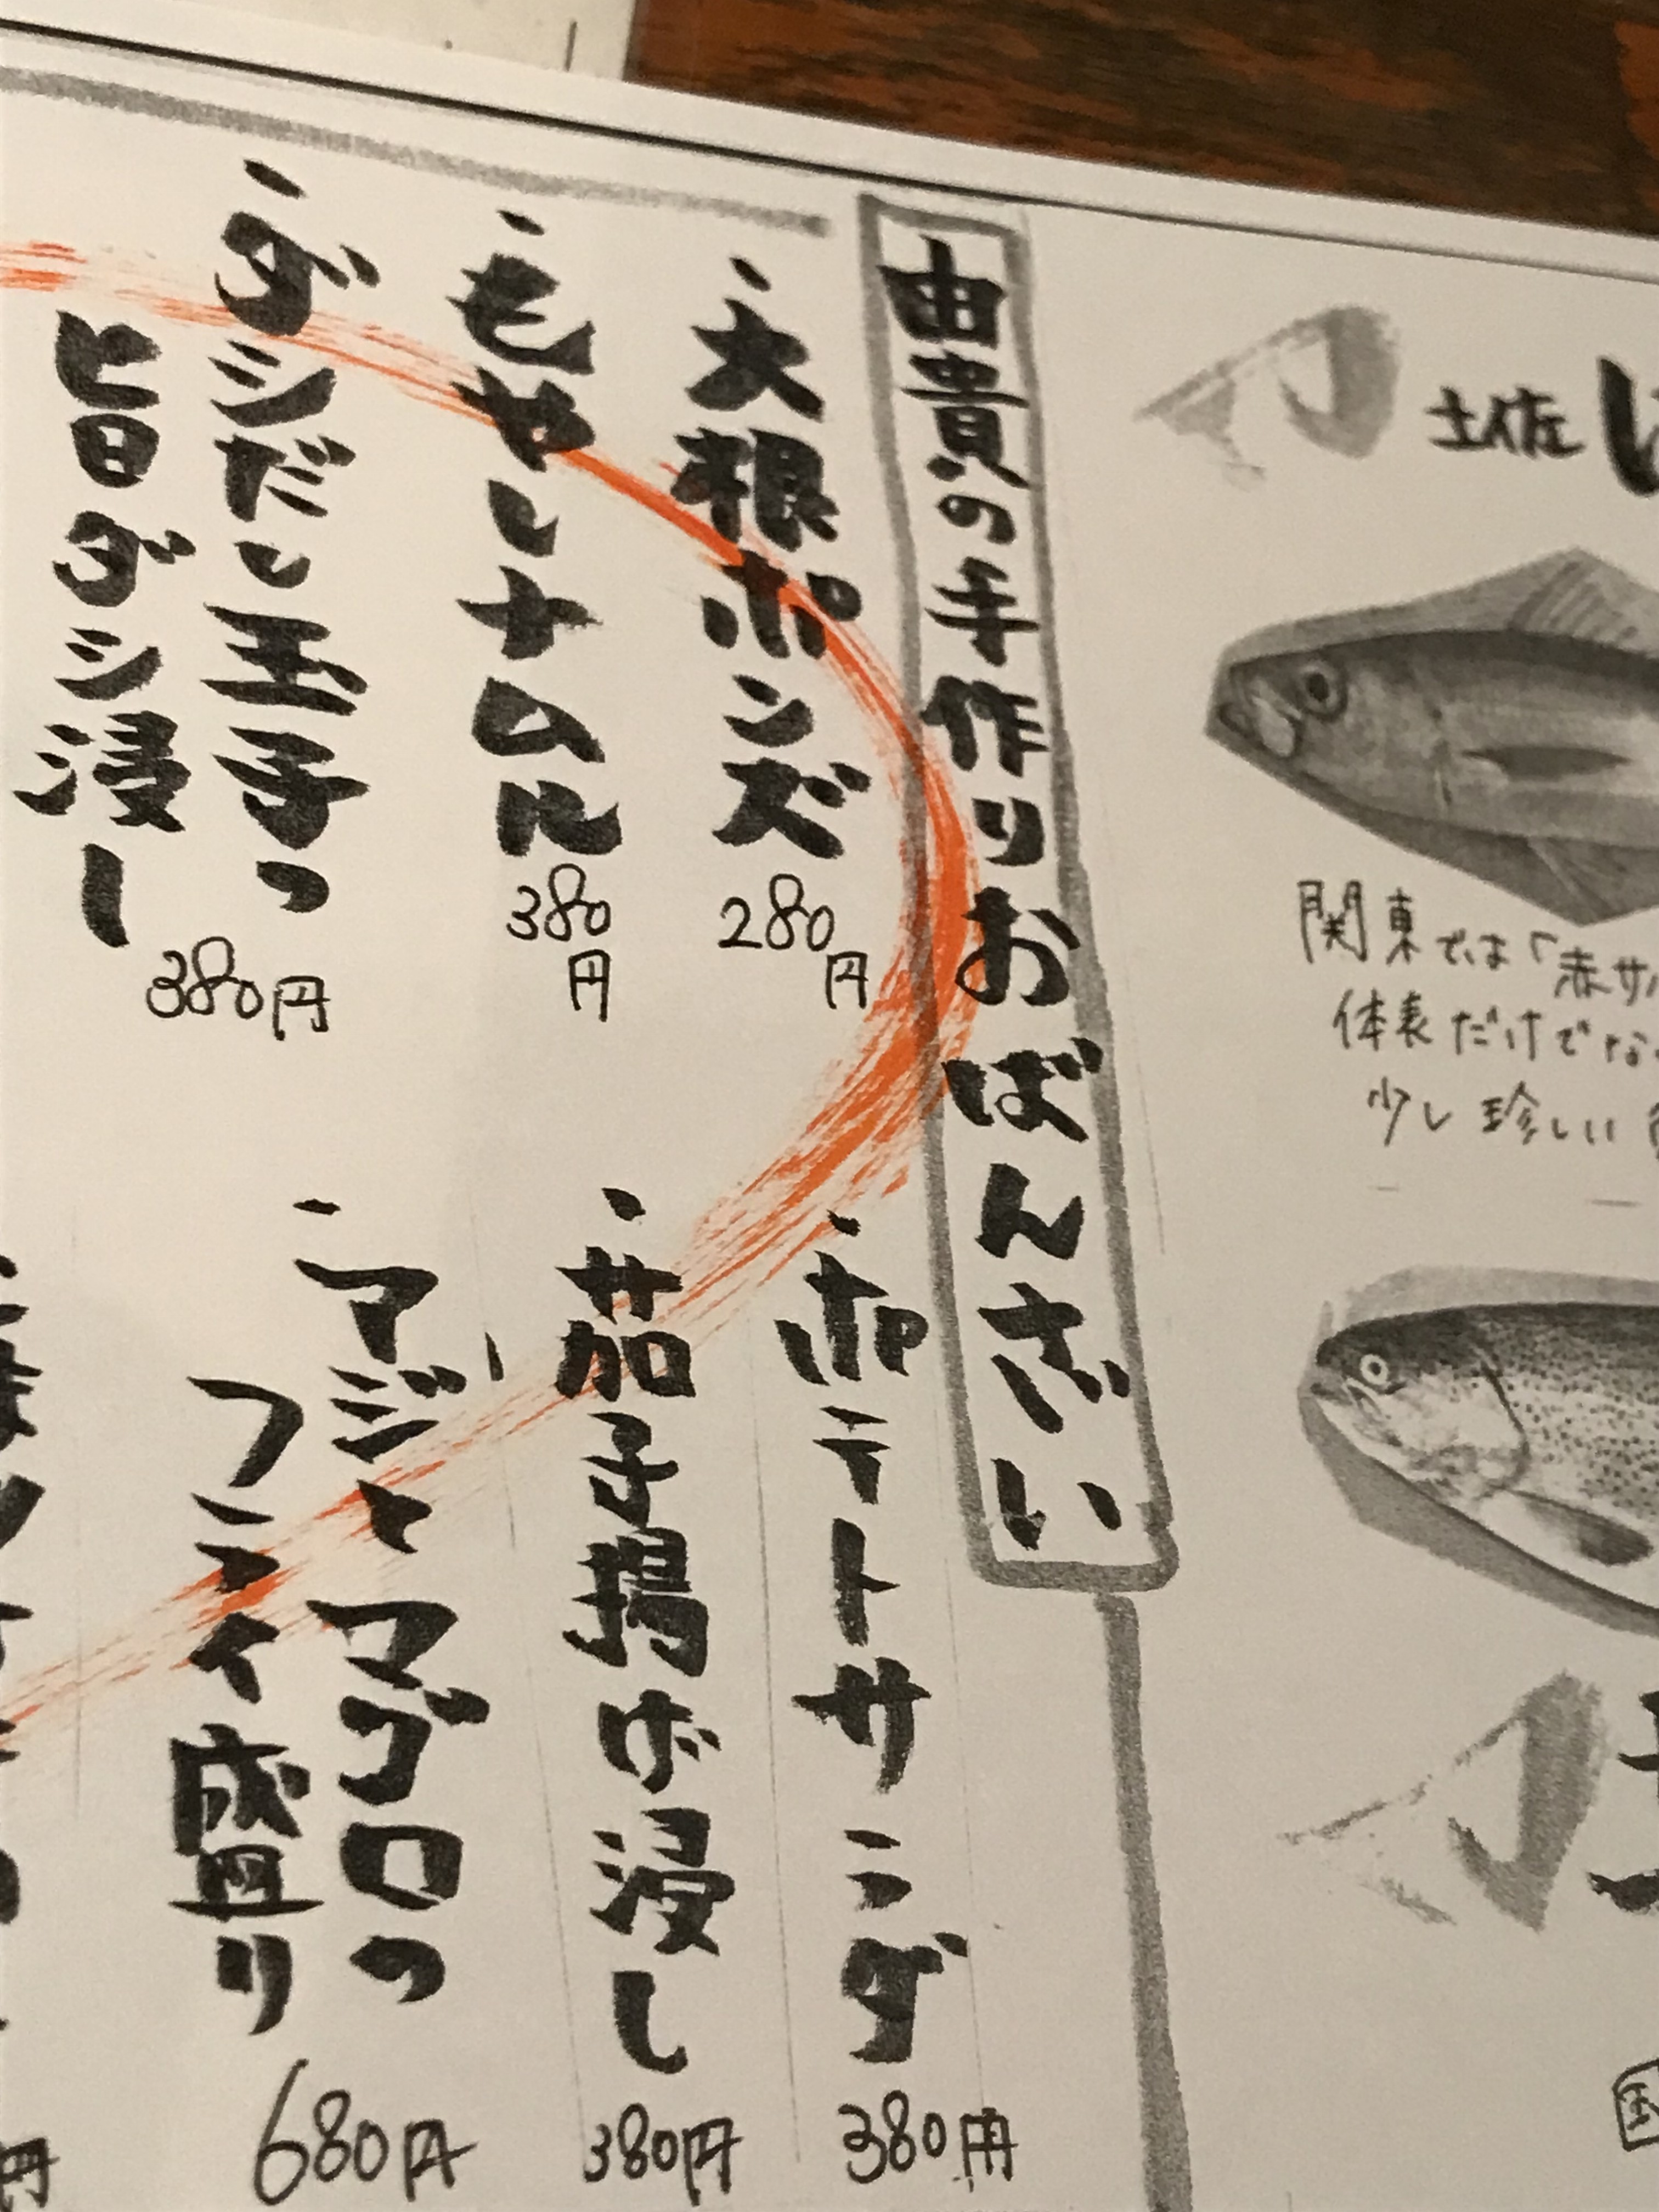 土佐
関東では「赤サバ
体表だけでな
少し珍しい
由貴の手作りおばんざい
・大根ポンズ
280円
・もやしナムル
380円
・ダシだし玉子っ
旨ダシ浸し
380円
・ポテトサラダ
380円
・茄子揚げ浸し
380円
・アジとマグロっ
フライ盛り
680円
円